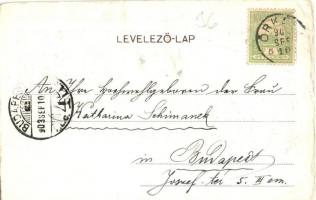 LEVELEZŐ-LAP
ÖRK
SEP
5
BUDAPE
903 SEP 10
An Ihre Hochwohlgeboren der Frau
Katharina Schimanek
in Budapest
József tér 5. III em.